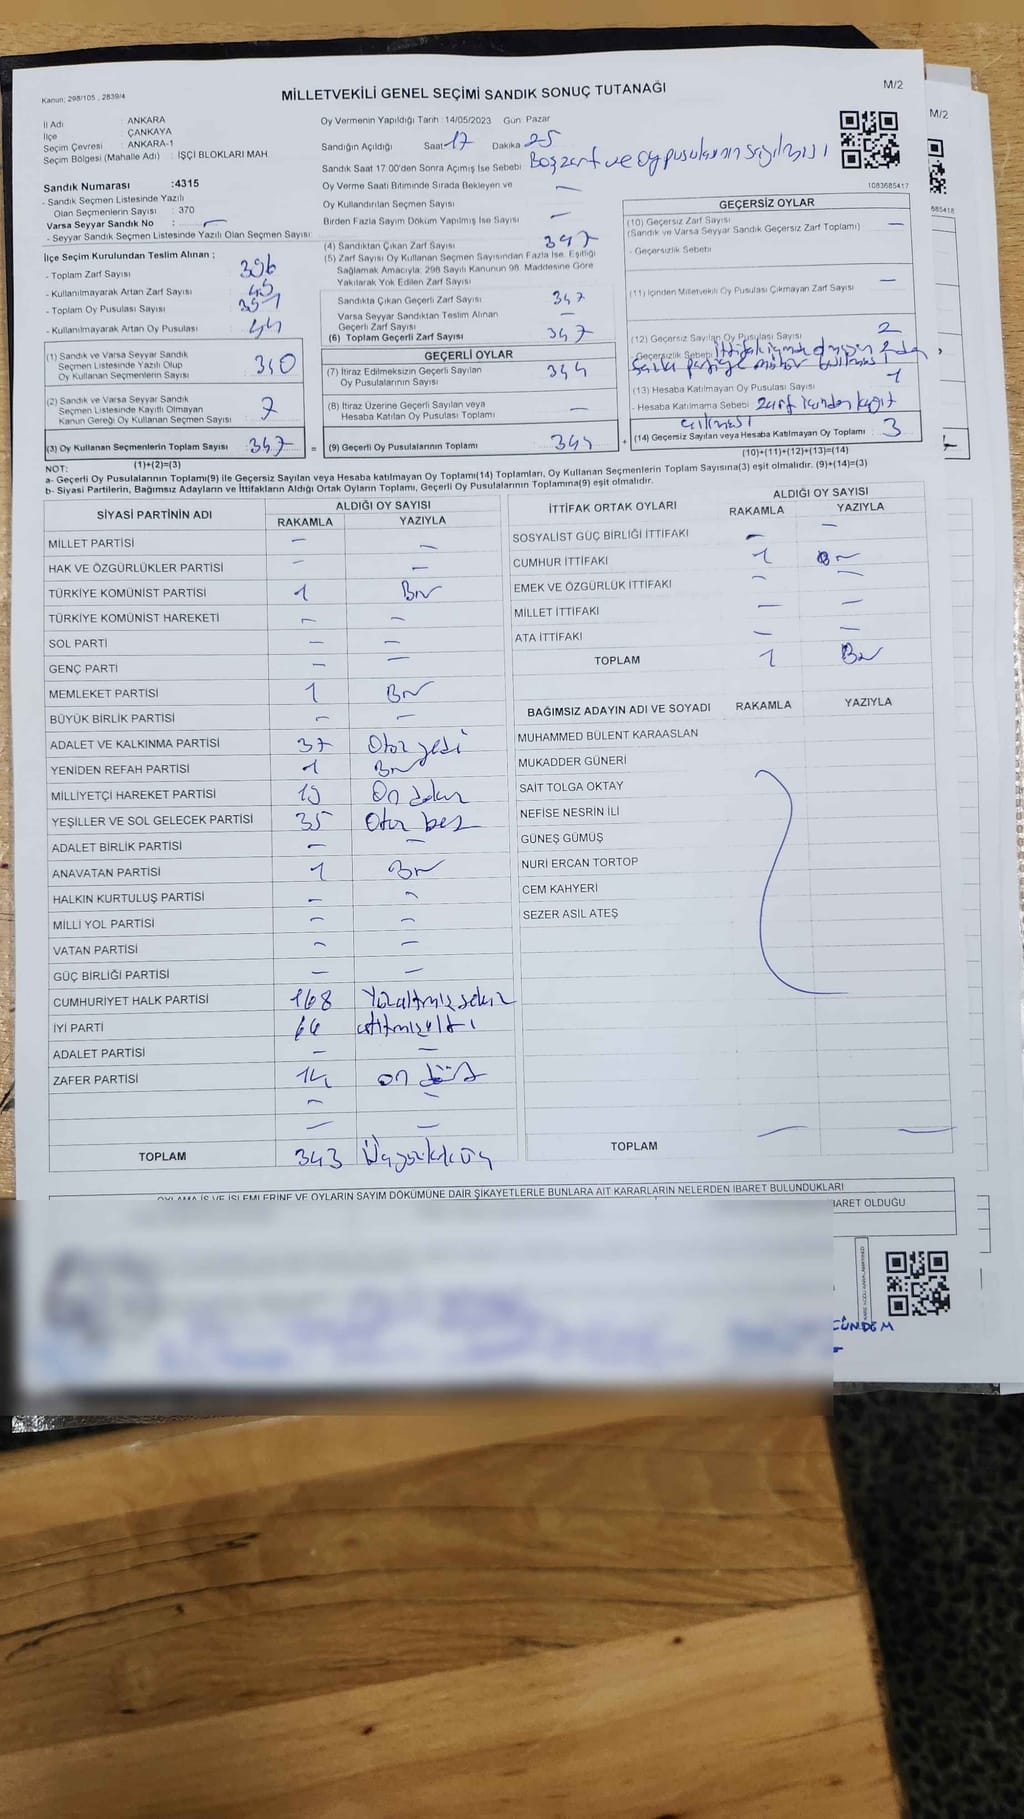 Kanun; 298/105 , 2839/4
MİLLETVEKİLİ GENEL SEÇİMİ SANDIK SONUÇ TUTANAĞI
M/2
M/2
İl Adı : ANKARA
İlçe : ÇANKAYA
Seçim Çevresi : ANKARA-1
Seçim Bölgesi (Mahalle Adı) : İŞÇİ BLOKLARI MAH.
Sandık Numarası :4315
- Sandık Seçmen Listesinde Yazılı
Olan Seçmenlerin Sayısı : 370
Varsa Seyyar Sandık No : –
- Seyyar Sandık Seçmen Listesinde Yazılı Olan Seçmen Sayısı:
Oy Vermenin Yapıldığı Tarih :14/05/2023 Gün: Pazar
Sandığın Açıldığı Saat 17 Dakika 25
Sandık Saat 17:00'den Sonra Açılmış İse Sebebi Boş zarf ve Oy pusulalarının sayılması
Oy Verme Saati Bitiminde Sırada Bekleyen ve –
Oy Kullandırılan Seçmen Sayısı
Birden Fazla Sayım Döküm Yapılmış İse Sayısı –
1083685417
İlçe Seçim Kurulundan Teslim Alınan ;
- Toplam Zarf Sayısı : 396
- Kullanılmayarak Artan Zarf Sayısı :
- Toplam Oy Pusulası Sayısı :
- Kullanılmayarak Artan Oy Pusulası : 44
(1) Sandık ve Varsa Seyyar Sandık
Seçmen Listesinde Yazılı Olup
Oy Kullanan Seçmenlerin Sayısı 340
(2) Sandık ve Varsa Seyyar Sandık
Seçmen Listesinde Kayıtlı Olmayan
Kanun Gereği Oy Kullanan Seçmen Sayısı 7
(3) Oy Kullanan Seçmenlerin Toplam Sayısı 347 =
(1)+(2)=(3)
(4) Sandıktan Çıkan Zarf Sayısı 347
(5) Zarf Sayısı Oy Kullanan Seçmen Sayısından Fazla İse, Eşitliği
Sağlamak Amacıyla; 298 Sayılı Kanunun 98. Maddesine Göre
Yakılarak Yok Edilen Zarf Sayısı
Sandıkta Çıkan Geçerli Zarf Sayısı 347
Varsa Seyyar Sandıktan Teslim Alınan
Geçerli Zarf Sayısı –
(6) Toplam Geçerli Zarf Sayısı 347
GEÇERLİ OYLAR
(7) İtiraz Edilmeksizin Geçerli Sayılan
Oy Pusulalarının Sayısı 344
(8) İtiraz Üzerine Geçerli Sayılan veya
Hesaba Katılan Oy Pusulası Toplamı –
(9) Geçerli Oy Pusulalarının Toplamı 344 +
GEÇERSİZ OYLAR
(10) Geçersiz Zarf Sayısı –
(Sandık ve Varsa Seyyar Sandık Geçersiz Zarf Toplamı)
- Geçersizlik Sebebi
(11) İçinden Milletvekili Oy Pusulası Çıkmayan Zarf Sayısı –
(12) Geçersiz Sayılan Oy Pusulası Sayısı 2
- Geçersizlik Sebebi
(13) Hesaba Katılmayan Oy Pusulası Sayısı 1
- Hesaba Katılmama Sebebi Zarf içinden kağıt
çıkması
(14) Geçersiz Sayılan veya Hesaba Katılmayan Oy Toplamı 3
(10)+(11)+(12)+(13)=(14)
NOT:
a- Geçerli Oy Pusulalarının Toplamı(9) ile Geçersiz Sayılan veya Hesaba katılmayan Oy Toplamı(14) Toplamları, Oy Kullanan Seçmenlerin Toplam Sayısına(3) eşit olmalıdır. (9)+(14)=(3)
b- Siyasi Partilerin, Bağımsız Adayların ve İttifakların Aldığı Ortak Oyların Toplamı, Geçerli Oy Pusulalarının Toplamına(9) eşit olmalıdır.
SİYASİ PARTİNİN ADI ALDIĞI OY SAYISI
RAKAMLA YAZIYLA
MİLLET PARTİSİ – –
HAK VE ÖZGÜRLÜKLER PARTİSİ – –
TÜRKİYE KOMÜNİST PARTİSİ 1 Bir
TÜRKİYE KOMÜNİST HAREKETİ – –
SOL PARTİ – –
GENÇ PARTİ – –
MEMLEKET PARTİSİ 1 Bir
BÜYÜK BİRLİK PARTİSİ – –
ADALET VE KALKINMA PARTİSİ 37 Otuz yedi
YENİDEN REFAH PARTİSİ 1 Bir
MİLLİYETÇİ HAREKET PARTİSİ 19 On dokuz
YEŞİLLER VE SOL GELECEK PARTİSİ 35 Otuz beş
ADALET BİRLİK PARTİSİ – –
ANAVATAN PARTİSİ 1 Bir
HALKIN KURTULUŞ PARTİSİ – –
MİLLİ YOL PARTİSİ – –
VATAN PARTİSİ – –
GÜÇ BİRLİĞİ PARTİSİ – –
CUMHURİYET HALK PARTİSİ 168 Yüzaltmışsekiz
İYİ PARTİ 66 altmışaltı
ADALET PARTİSİ – –
ZAFER PARTİSİ 14 on dört
– –
– –
TOPLAM 343 Üçyüzkırküç
İTTİFAK ORTAK OYLARI ALDIĞI OY SAYISI
RAKAMLA YAZIYLA
SOSYALİST GÜÇ BİRLİĞİ İTTİFAKI – –
CUMHUR İTTİFAKI 1 Bir
EMEK VE ÖZGÜRLÜK İTTİFAKI – –
MİLLET İTTİFAKI – –
ATA İTTİFAKI – –
TOPLAM 1 Bir
BAĞIMSIZ ADAYIN ADI VE SOYADI RAKAMLA YAZIYLA
MUHAMMED BÜLENT KARAASLAN
MUKADDER GÜNERİ
SAİT TOLGA OKTAY
NEFİSE NESRİN İLİ
GÜNEŞ GÜMÜŞ
NURİ ERCAN TORTOP
CEM KAHYERİ
SEZER ASIL ATEŞ
TOPLAM – –
OYLAMA İŞ VE İŞLEMLERİNE VE OYLARIN SAYIM DÖKÜMÜNE DAİR ŞİKAYETLERLE BUNLARA AİT KARARLARIN NELERDEN İBARET BULUNDUKLARI
İBARET OLDUĞU
GÜNDEM